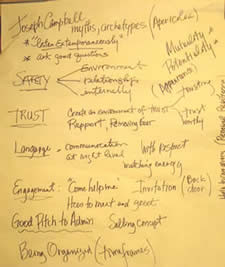 Joseph Campbell
myths, archetypes (Apericolca)
* "listen Extemporaneously"
* ask good questions
Mutuality
Potentiality
SAFETY
Environment
relationships
internally
(Appearance)
trusting
TRUST
Create an environment of trust
Rapport, Removing fear
trust
worthy
Language = communication
at right level
with respect
matching energy
Engagement: "Come help me"
Invitation (Back
door)
How to meet and greet
Good Pitch to Admin
Selling Concept
Being Organized (timeframes)